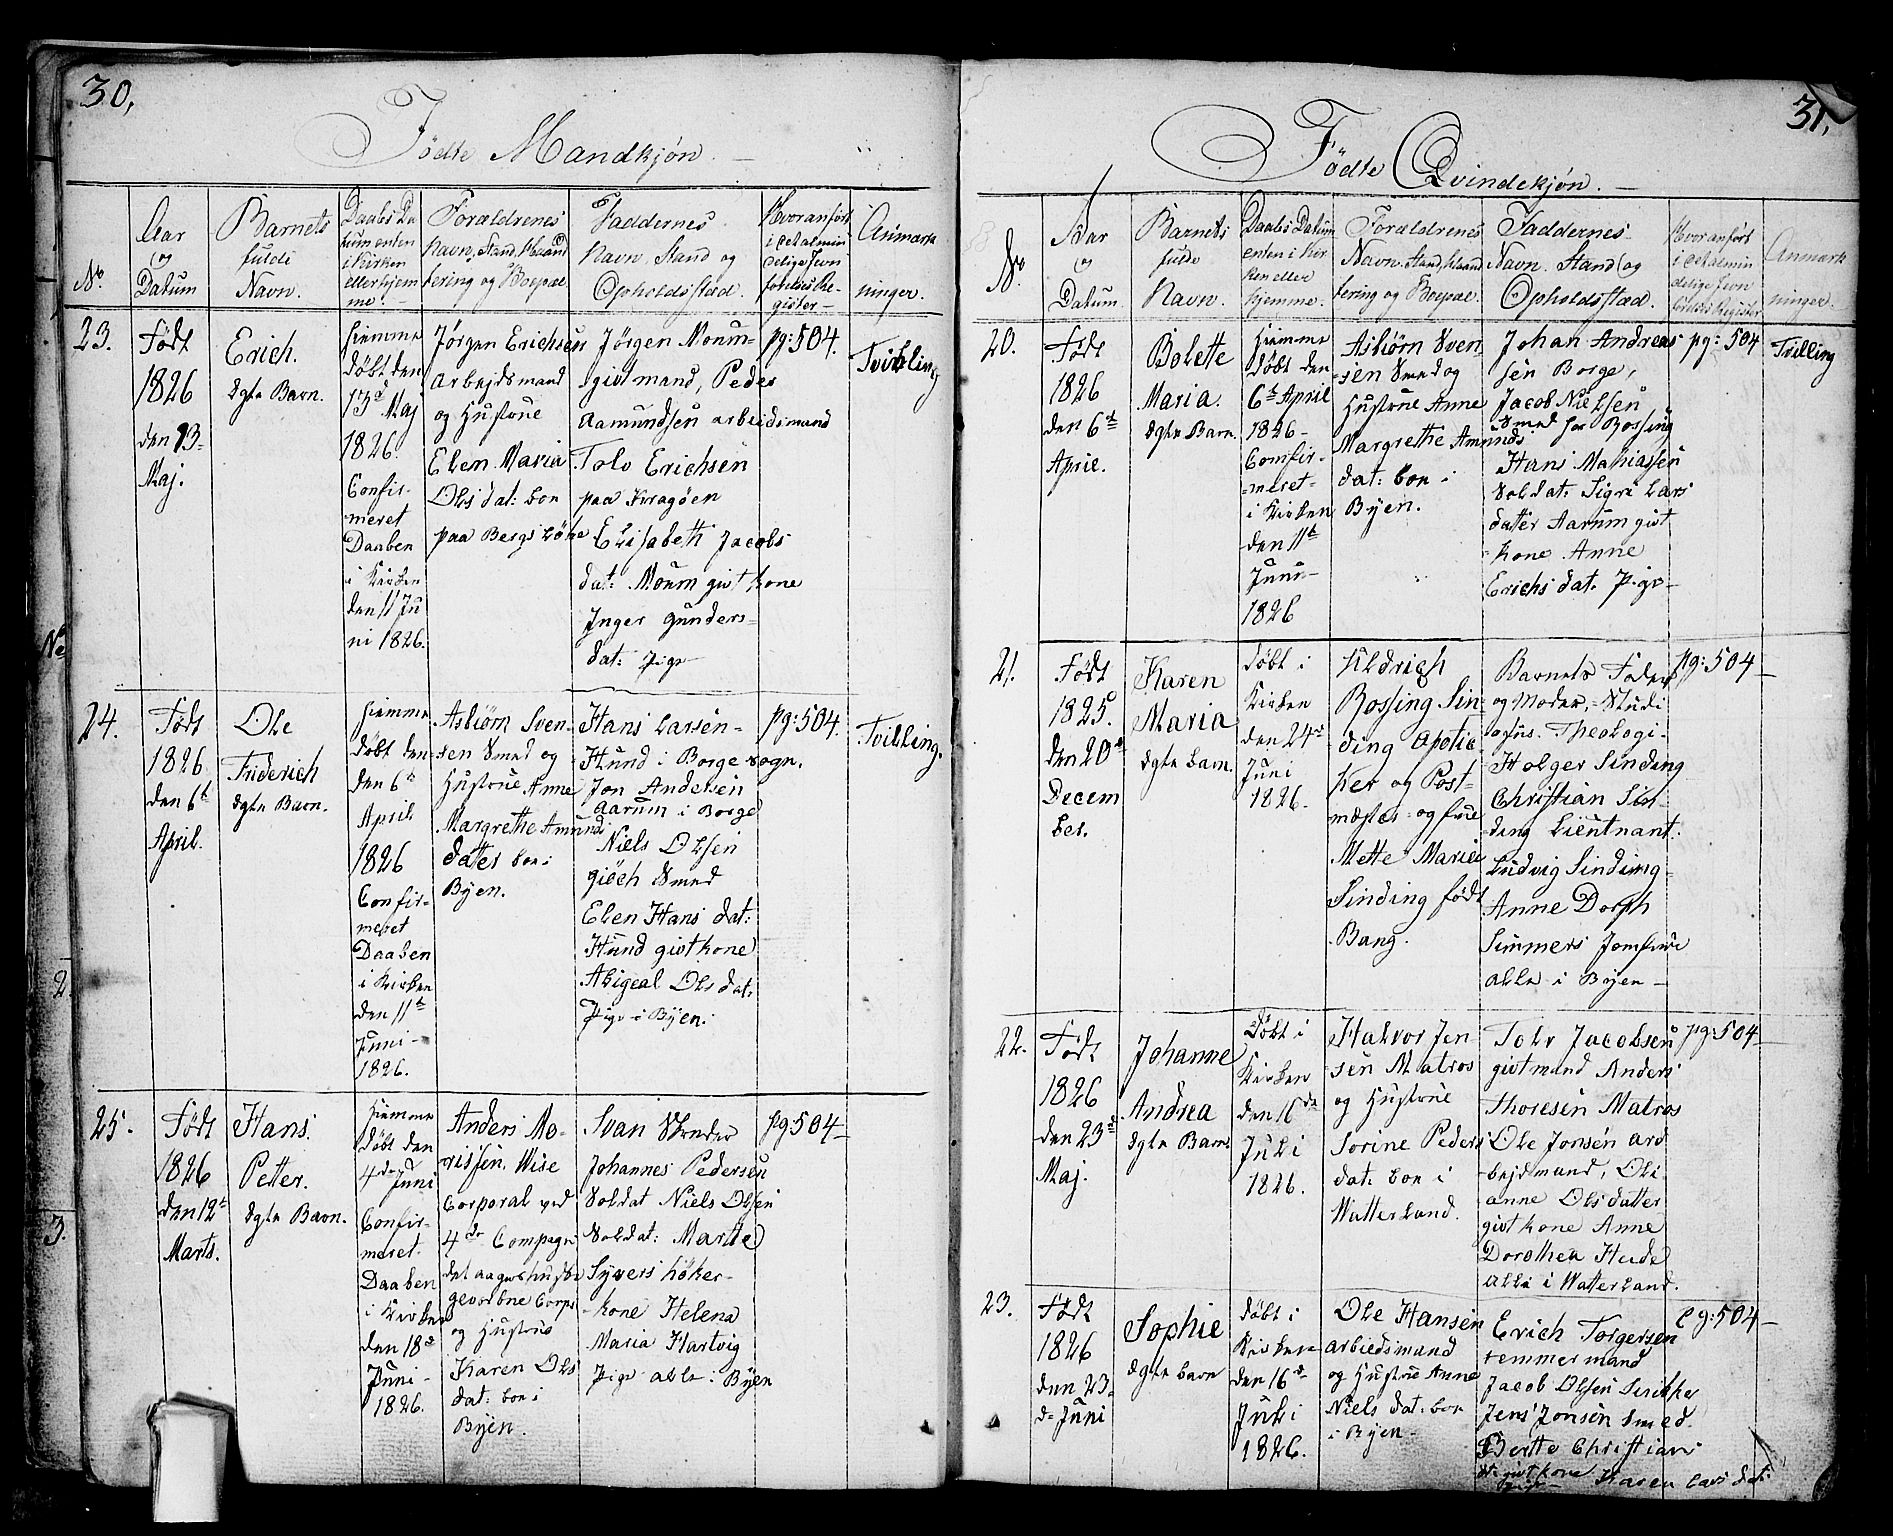 30,
Födte Mandkjön.
No.
Aar
og
Datum
Barnets
fulde
Navn.
Daabs Da
tum enten
i Kirken
eller hjem
me.
Forældrenes
Navn, Stand, Haand
tering og Boepæl
Faddernes
Navn, Stand og
Opholdsstæd.
Hvor anført
i det almin
delige Jevn
førelses Re-
gister
Anmærk
ninger.
23.
Födt
1826
den 13-
Maj.
Erich.
Ægte Barn.
hiemme
döbt den
13d Maj
1826
Confir-
meret
Daaben
i Kirken
den 11 Ju
ni 1826.
Jörgen Erichsen
Arbejdsmand
og Hustrue
Elen Maria
Olsdat: boe
paa Bergs Löke
Jörgen Moum-
givtmand, Peder
Aamundsen arbeidsmand
Tolv Erichsen
paa Kragöen
Elisabeth Jacobs
dat: Moum givt kone
Inger Gunders-
dat: Pige
pg: 504.
Tvilling
24.
Födt
1826
den 6t
April.
Ole
Friderich
Ægte Barn.
hiemme
döbt den
den 6t
April
1826
Confir-
meret
Daaben
i Kirken
den 11t
Juni-
1826.
Asbiörn Sven-
sen Smed og
Hustrue Anne
Margrethe Amund
datter boe i
Byen.
Hans Larsen-
Hund i Borge Sogn.
Jon Andersen
Aarum i Borge
Niels Olsen
Giöch Smed
Elen Hans dat:
Hund givt kone
Abigeal Olsdat:
Pige i Byen.
pg: 504.
Tvilling.
25.
Födt
1826
den 12t
Marts.
Hans.
Petter.
Ægte Barn.
hiemme
döbt den
4de Juni
Confir-
meret
Daaben
i Kirken
den 18d
Juni-
1826.
Anders Mo-
rissen, Wise
Corporal ved
4de Compagni
det aagershuske
gevorbne Corps
og Hustrue
Karen Ols
dat: boe i
Byen.
Svan
Johannes Pedersen
Soldat Niels Olsen
Soldat: Marte
Syvers höker-
kone Helena
Maria Hartvig
Pige alle i Byen
pg 504
31.
Födte Qvindekjön.
No.
Aar
og
Datum
Barnets
fulde
Navn.
Daabs Datum
enten i Kir
ken eller
hjemme.
Forældrenes
Navn, Stand, Haand
tering og Boepæl.
Faddernes
Navn, Stand og
Opholdsstæd.
Hvor anført
i det almin
delige Jevn
førelses Register
Anmærk
ninger.
20.
Födt
1826
den 6t
April.
Bolette
Maria.
Ægte Barn.
hiemme
döbt den
6t April
1826-
Comfir-
meret-
i Kirken
den 11t
Juni-
1826
Asbiörn Sven
sen Smed og
Hustrue Anne
Margrethe Amunds
dat: boe i
Byen.
Johan Andreas
sen Borge,
Jacob Nielsen
Smed for Rossing
Hans Mathiassen
Soldat: Sigri Lars
datter Aarum givt
kone Anne
Erichs dat: Pige
pg: 504
Tvilling
21.
Födt
1825.
den 20d
Decem
ber.
Karen
Maria
Ægte barn.
döbt i
Kirken
den 24d
Juni
1826.
Uldrich
Rossing Sin
ding Apotie
ker og Post-
mester og frue
Mette Marie
Sinding födt
Bang.
Barnets Fader
og Moder, Studi
osus. Theologi-
Holger Sinding
Christian Sin-
ding Lieutnant.
Ludvig Sinding-
Anne Dorph
Simmers Jomfrue
alle i Byen
pg: 504
22.
Födt
1826
den 23d
Maj.
Johanne
Andrea
Ægte Barn.
Döbt i
Kirken
den 16de
Juli
1826.
Halvor Jen
sen Matros
og Hustrue
Sorine Peders
dat: boe i
Watterland.
Tolv Jacobsen
givtmand Anders
Thoresen Matros
Ole Jonsen ard
bejdmand, Oli
anne Olsdatter
givt kone Anne
Dorothea Heide
alle i Watterland.
pg: 504
23.
Födt
1826
den 23-
d- Juni
Sophie
Ægte barn
döbt i
Kirken
den 16d
Juli
1826.
Ole Hansen
arbiedsmand
og Hustrue Anne
Niels dat: boe
i Byen-
Erich Torgersen
temmermand
Jacob Olsen
Jens Jonsen Smed.
Berthe Christians
dt: givt kone Karen Lars dat:
Pige
pg: 504